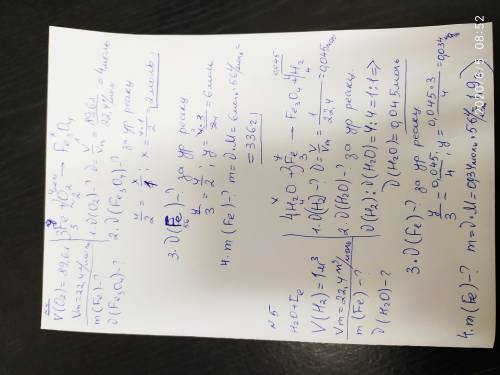 V(O₂)=89,6л
Vm=22,4 л/моль
m(Fe)-?
ν(Fe₃O₄)-?
3Fe+2O₂ → Fe₃O₄
1. ν(O₂)-? ν=V/Vm=89,6л/22,4л/моль=4моль
2. ν(Fe₃O₄)-? за ур реакц
4/2=x/1; x=4·1/2=2моль
3. ν(Fe)-? за ур реакц
y/3=4/2; y=4·3/2=6моль
4. m(Fe)-? m=ν·M=6моль·56г/моль=
=336г
N5
H₂O+Fe
V(H₂)=1м³
Vm=22,4м³/моль
m(Fe)-?
ν(H₂O)-?
4H₂O+3Fe → Fe₃O₄+4H₂
1. ν(H₂)-? ν=V/Vm=1/22,4=0,045моль
2 ν(H₂O)-? за ур реакц.
ν(H₂):ν(H₂O)=4:4=1:1⇒
ν(H₂O)=0,045моль
3. ν(Fe)-? за ур реакц
y/3=0,045/4; y=0,045·3/4=0,034
4. m(Fe)-? m=ν·M=0,034моль·56
2021/6/5 08:52